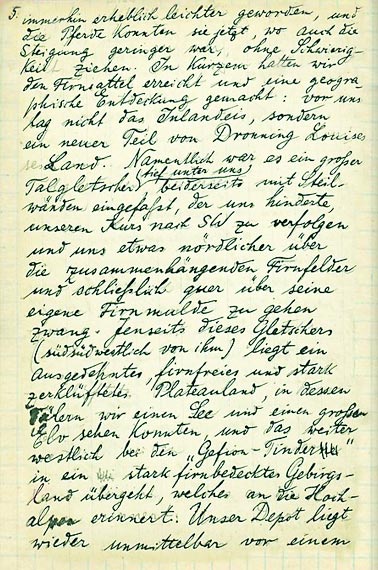 5. immerhin erheblich leichter geworden, und
die Pferde konnten sie jetzt, wo auch die
Steigung geringer war, ohne Schwierig-
keit ziehen. In Kurzem hatten wir
den Firnsattel erreicht und eine geogra-
phische Entdeckung gemacht: vor uns
lag nicht das Inlandeis, sondern
ein neuer Teil von Dronning Louises
Land. Namentlich war es ein großer
(tief unter uns)
Talgletscher, beiderseits mit Steil-
wänden eingefaßt, der uns hinderte
unseren Kurs nach SW zu verfolgen
und uns etwas nördlicher über
die zusammenhängenden Firnfelder
und schließlich quer über seine
eigene Firnmulde zu gehen
zwang. Jenseits dieses Gletschers
(südsüdwestlich von ihm) liegt ein
ausgedehntes, firnfreies und stark
zerklüftetes Plateauland, in dessen
Tälern wir einen See und einen großen
Elv sehen konnten, und das weiter
westlich bei den „Gefion-Tinder“
in ein stark firnbedecktes Gebirgs-
land übergeht, welches an die Hoch-
alpen erinnert. Unser Depot liegt
wieder unmittelbar vor einem